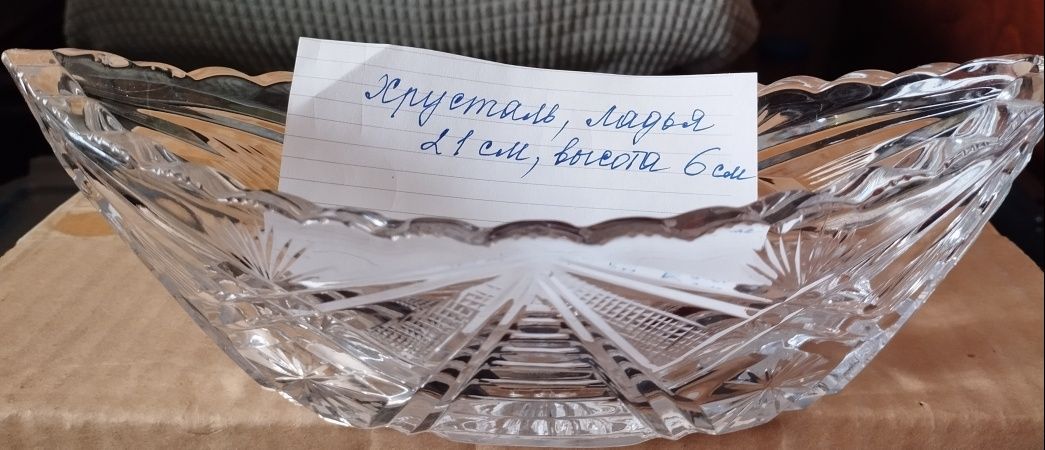 Хрусталь, ладья
21 см, высота 6 см